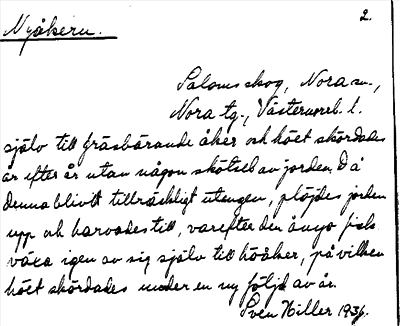 2.
Nyåkern.
Salomskog, Nora sn.,
Nora tg., Västernorrl. l.
själv till gräsbärande åker och höet skördades
år efter år utan någon skötsel av jorden. Då
denna blivit tillräckligt utmagen, plöjdes jorden
upp och harvades till, varefter den ånyo fick
växa igen av sig själv till höåker, på vilken
höet skördades under en ny följd av år.
Sven Hiller